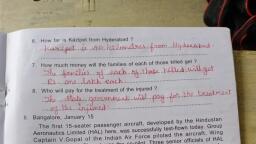 6. How far is Kazipet from Hyderabad ?
Kazipet is 110 kilometres from Hyderabad.
7. How much money will the families of each of those killed get ?
The families of each of those killed will get
Rs one lakh each
8. Who will pay for the treatment of the injured ?
The State government will pay for the treatment
of the injured
5. Bangalore, January 15
The first 15-seater passenger aircraft, developed by the Hindustan
Aeronautics Limited (HAL) here, was successfully test-flown today. Group
Captain V.Gopal of the Indian Air Force piloted the aircraft, Wing
Three senior officials of HAL